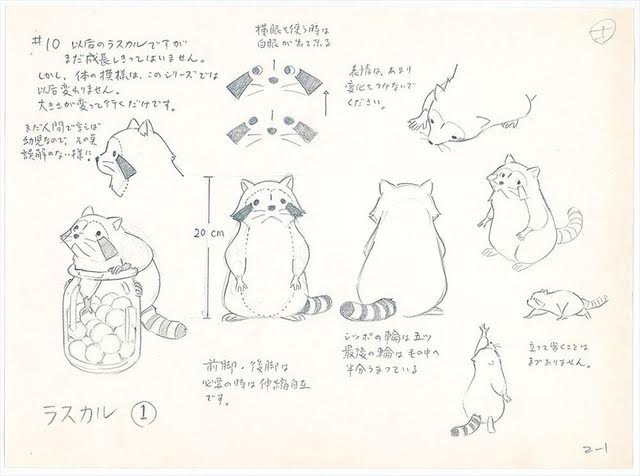 #10 以后のラスカルですが
まだ成長しきってはいません。
しかし、体の模様は、このシリーズでは
以后変わりません。
大きさが変って行くだけです。
まだ人間で言えば
幼児なので、その点
誤解のない様に
横眼を使う時は
白眼が出て来る
表情は、あまり
変化をつけないで
ください。
20 cm
前脚・後脚は
必要の時は伸縮自在
です。
シッポの輪は五ツ
最後の輪は毛の中へ
半分うまっている
立って歩くことは
まずありません。
ラスカル ①
2-1